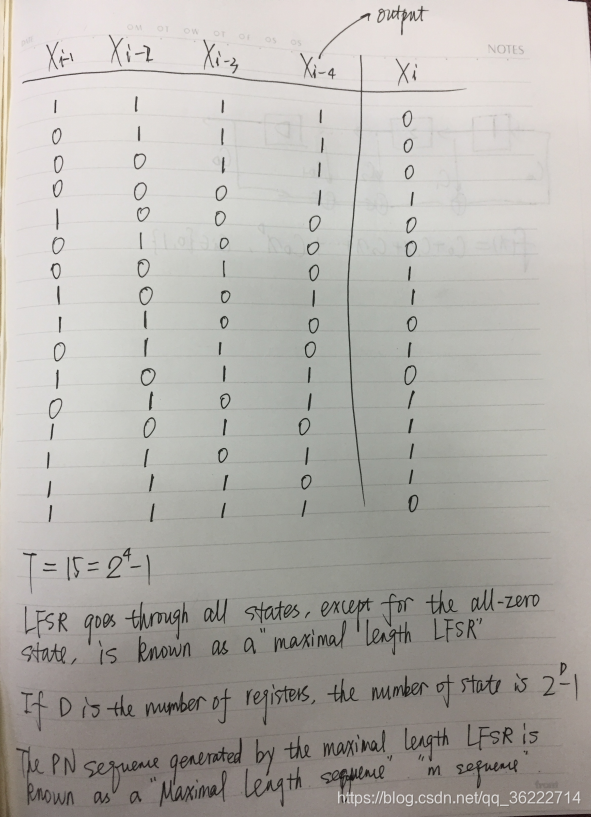 output
NOTES
Xi-1 Xi-2 Xi-3 Xi-4 Xi
1 1 1 1 0
0 1 1 1 0
0 0 1 1 0
0 0 0 1 1
1 0 0 0 0
0 1 0 0 0
0 0 1 0 1
1 0 0 1 1
1 1 0 0 0
0 1 1 0 1
1 0 1 1 0
0 1 0 1 1
1 0 1 0 1
1 1 0 1 1
1 1 1 0 1
1 1 1 1 0
T = 15 = 2⁴-1
LFSR goes through all states, except for the all-zero
state, is known as a "maximal length LFSR"
If D is the number of registers, the number of state is 2ᴰ-1
The PN sequence generated by the maximal length LFSR is
known as a "Maximal Length sequence" "m sequence"
https://blog.csdn.net/qq_36222714